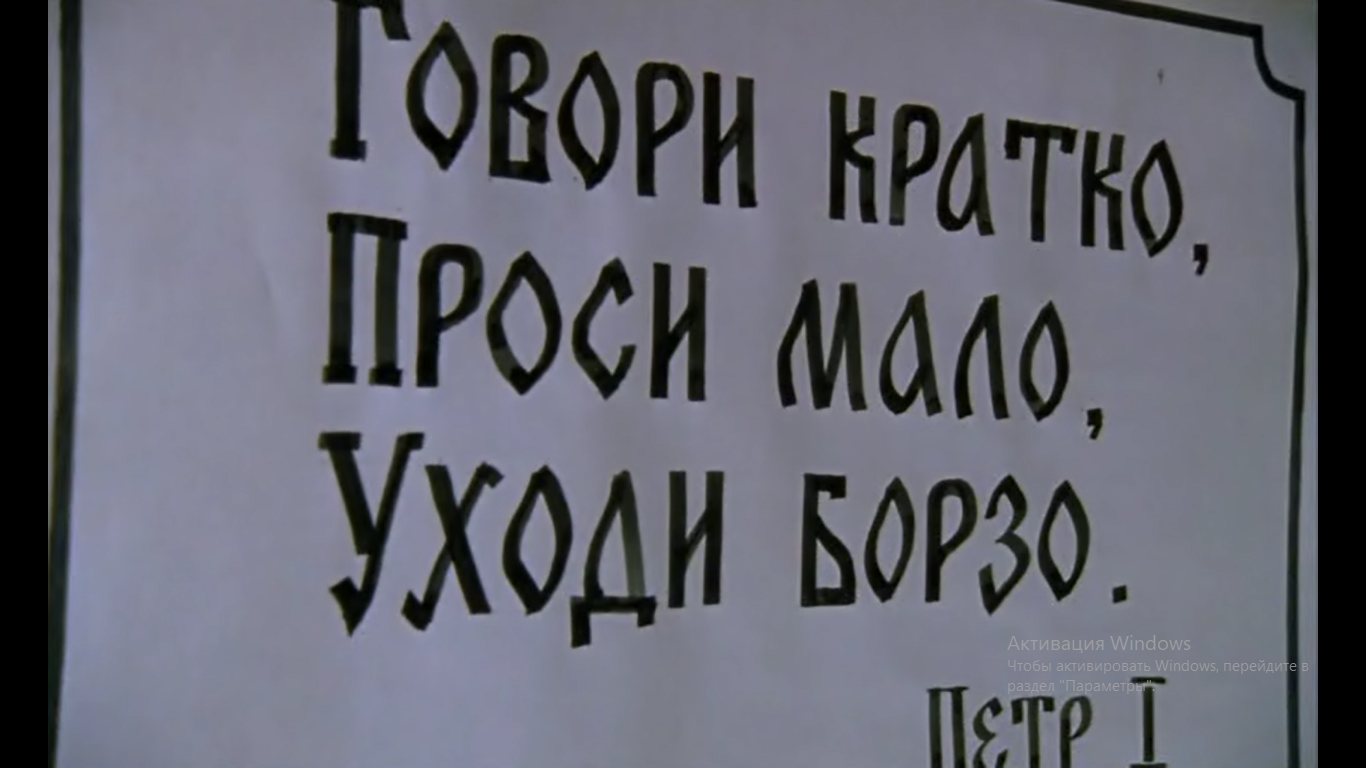 Говори кратко,
Проси мало,
Уходи борзо.
Петр I
Активация Windows
Чтобы активировать Windows, перейдите в
раздел "Параметры".